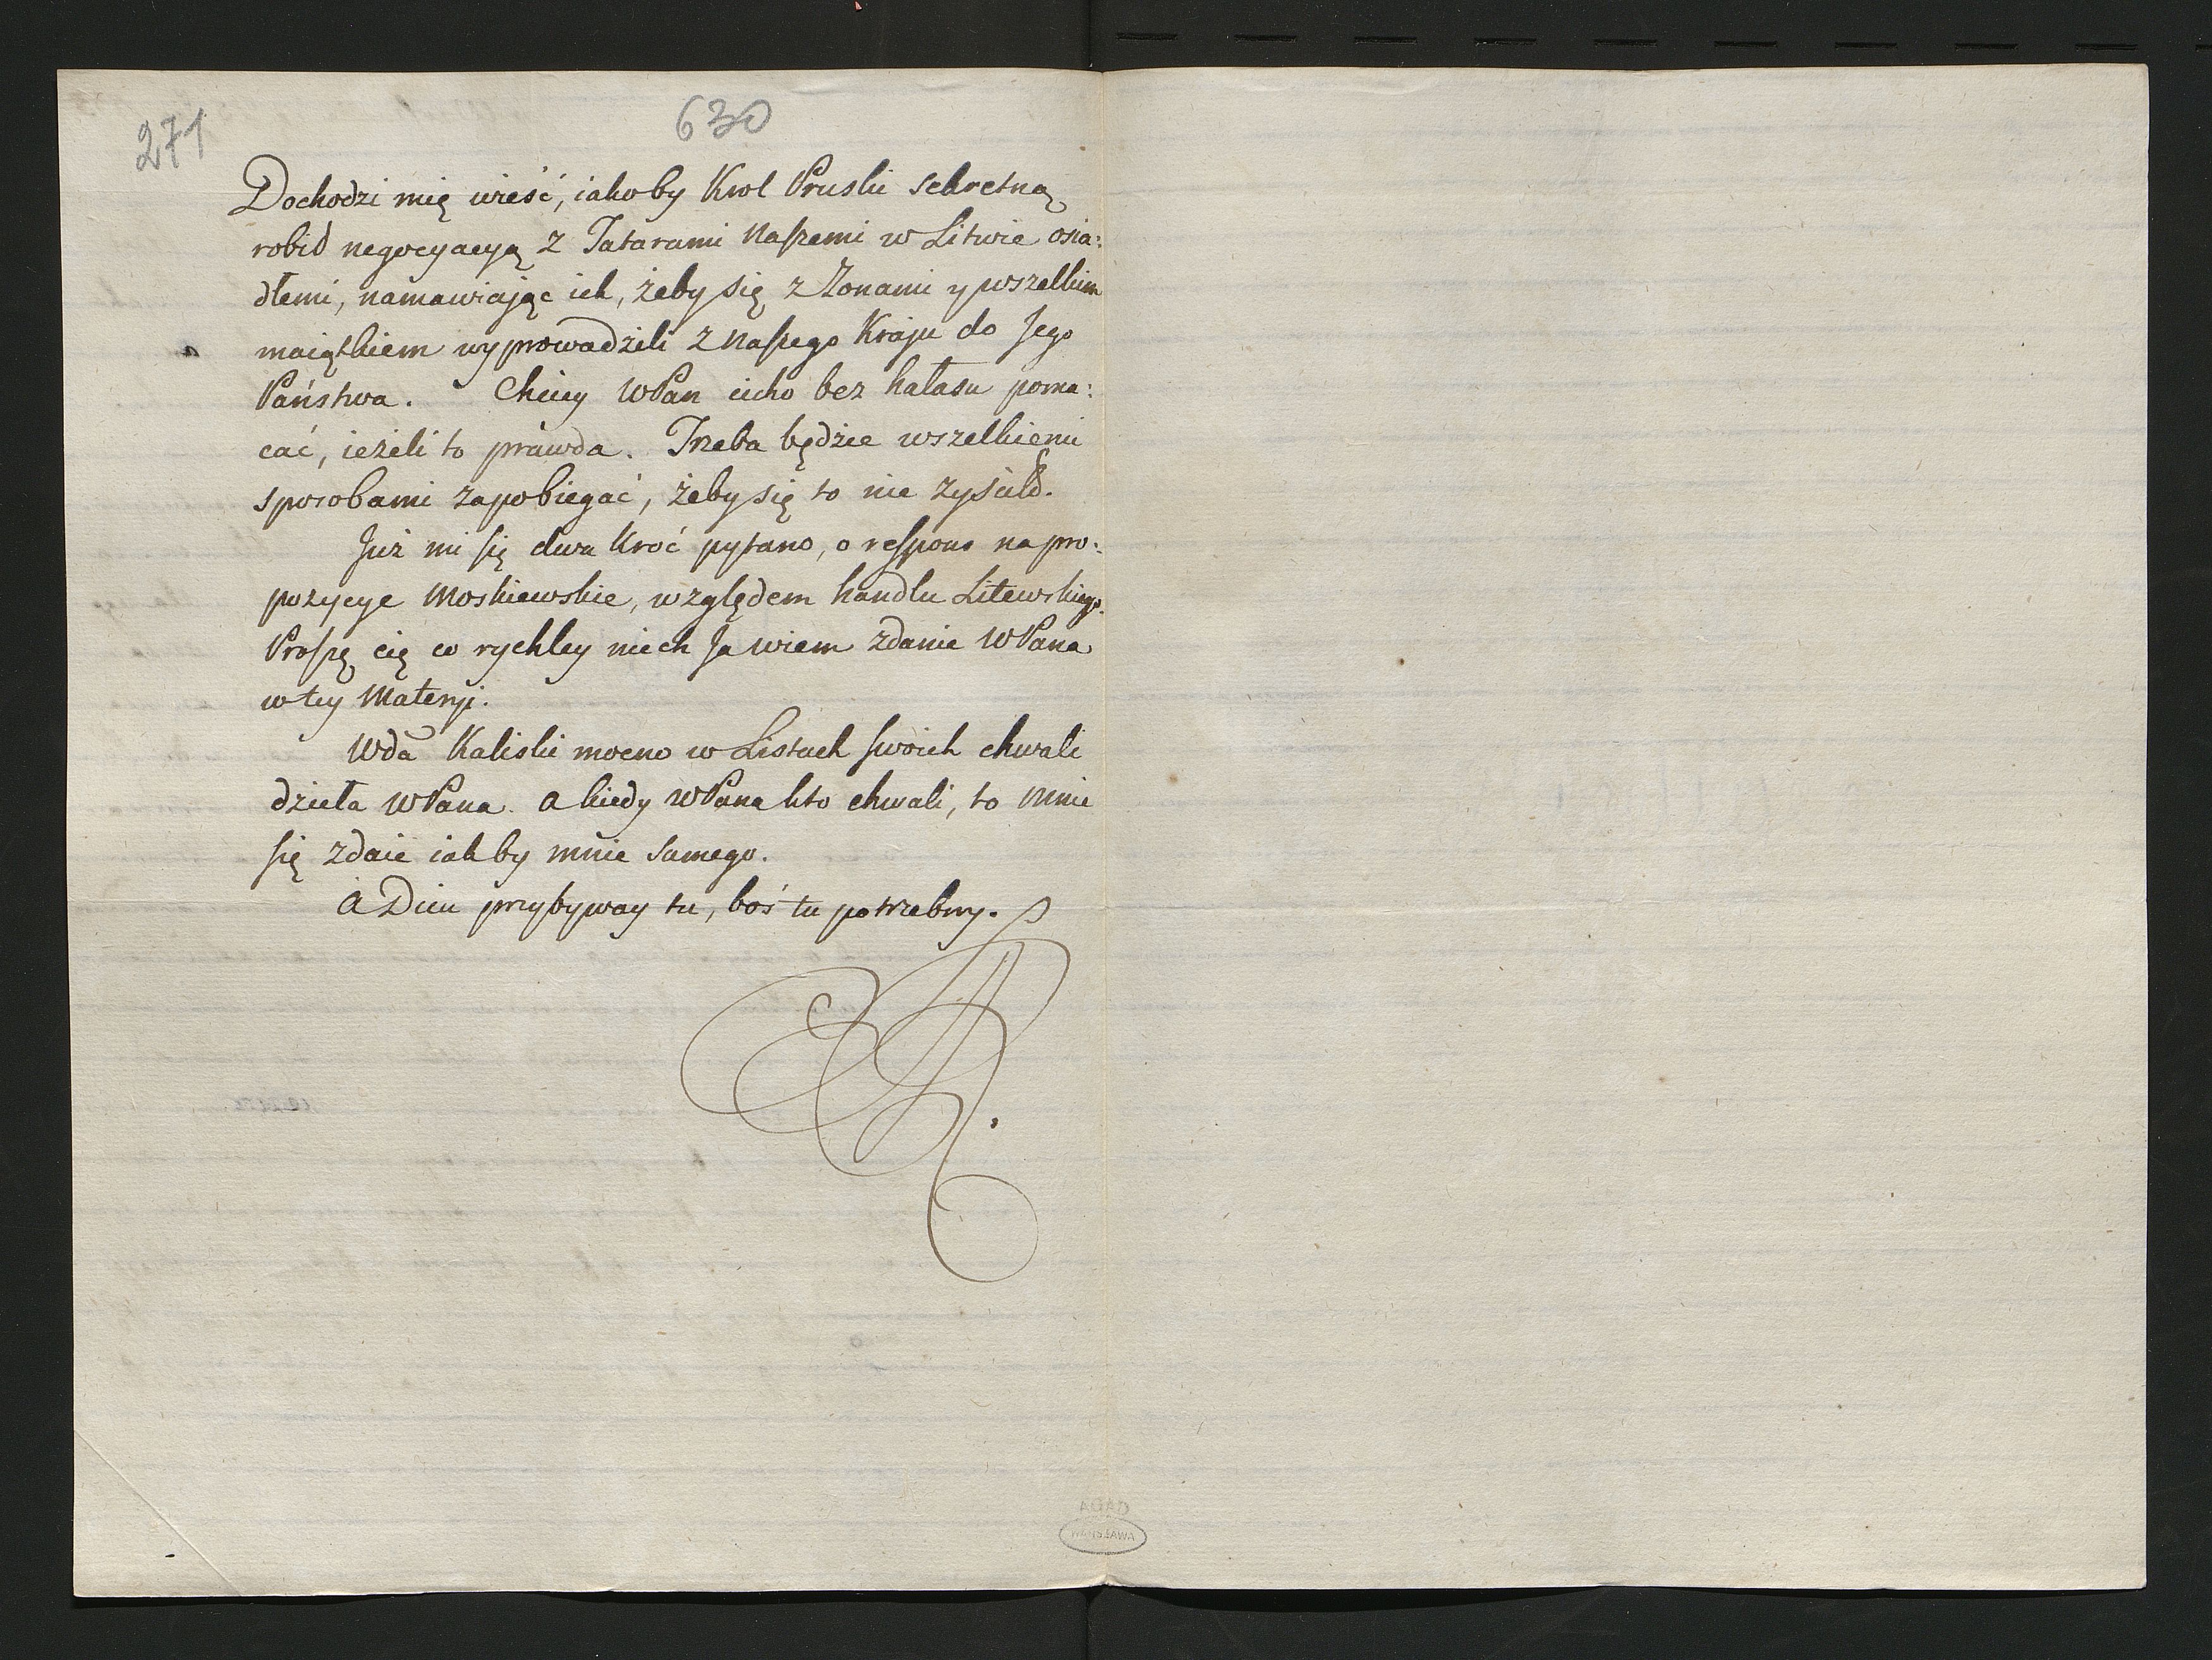 271
630
Dochodzi mię wieść, iakoby Krol Pruski sekretną
robił negocyacyą z Tatarami naszemi w Litwie osia:
dłemi, namawiając ich, żeby się z Żonami y wszelkim
maiątkiem wyprowadzili z naszego Kraju do Jego
Państwa. Chciey WPan cicho bez hałasu poma:
cać, ieżeli to prawda. Trzeba będzie wszelkiemi
sposobami zapobiegać, żeby się to nie zyścił.
Już mi się dwa kroć pytano, o respons na pro:
pozycye Moskiewskie, względem handlu Litewskiego.
Proszę cię co rychley niech Ja wiem zdanie WPana
w tey Materyi.
Wda Kaliski mocno w Listach swoich chwali
dzieła WPana. a kiedy WPana kto chwali, to mnie
się zdaie iakby mnie samego.
a Dieu przybyway tu, boś tu potrzebny.
AGAD
WARSZAWA